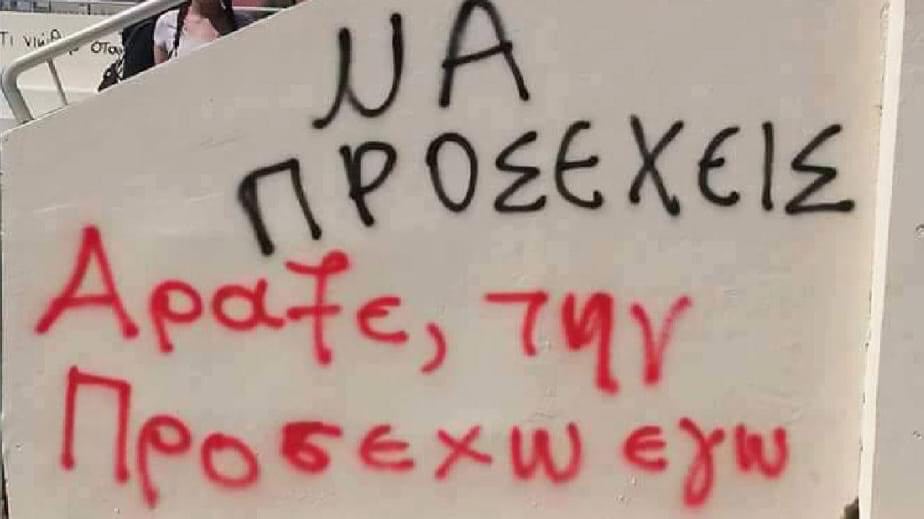 Τι νιώθ
οτα
ΝΑ
ΠΡΟΣΕΧΕΙΣ
Αραξε, την
Προσεχω εγω